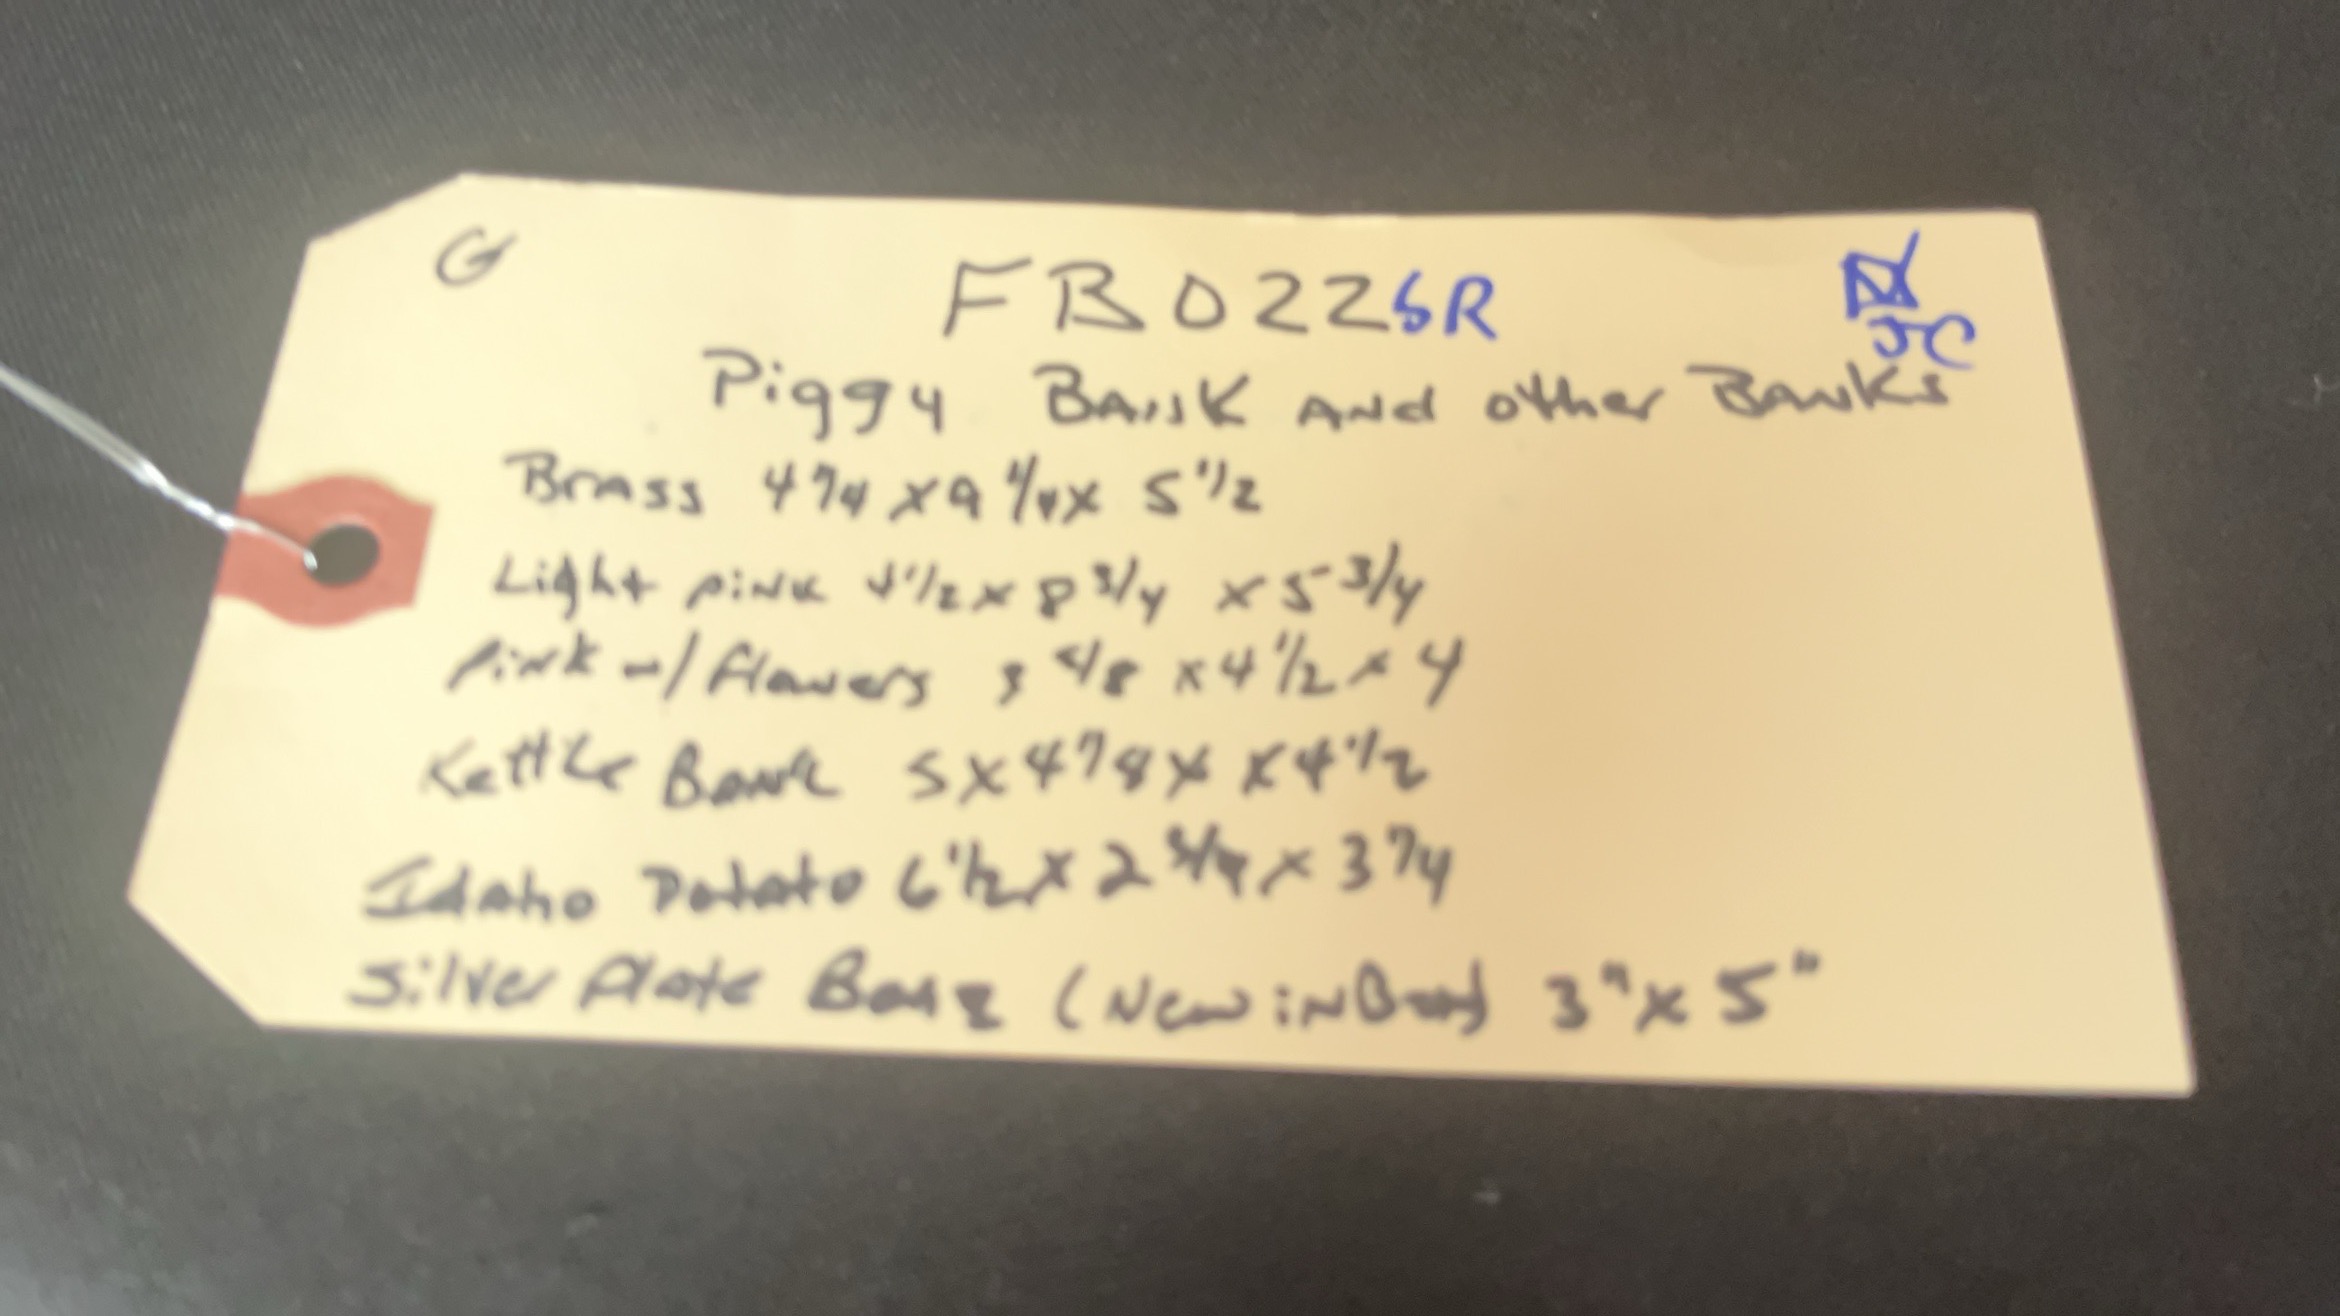 G
FB022SR
JC
Piggy Bank And other Banks
Brass 4 7/4 x 9 1/4 x 5 1/2
Light pink 4 1/2 x 8 3/4 x 5 3/4
Pink w/ flowers 3 4/8 x 4 1/2 x 4
Kettle Bank 5 x 4 7/8 x x 4 1/2
Idaho Potato 6 1/2 x 2 3/4 x 3 7/4
Silver Plate (New in Box) 3" x 5"